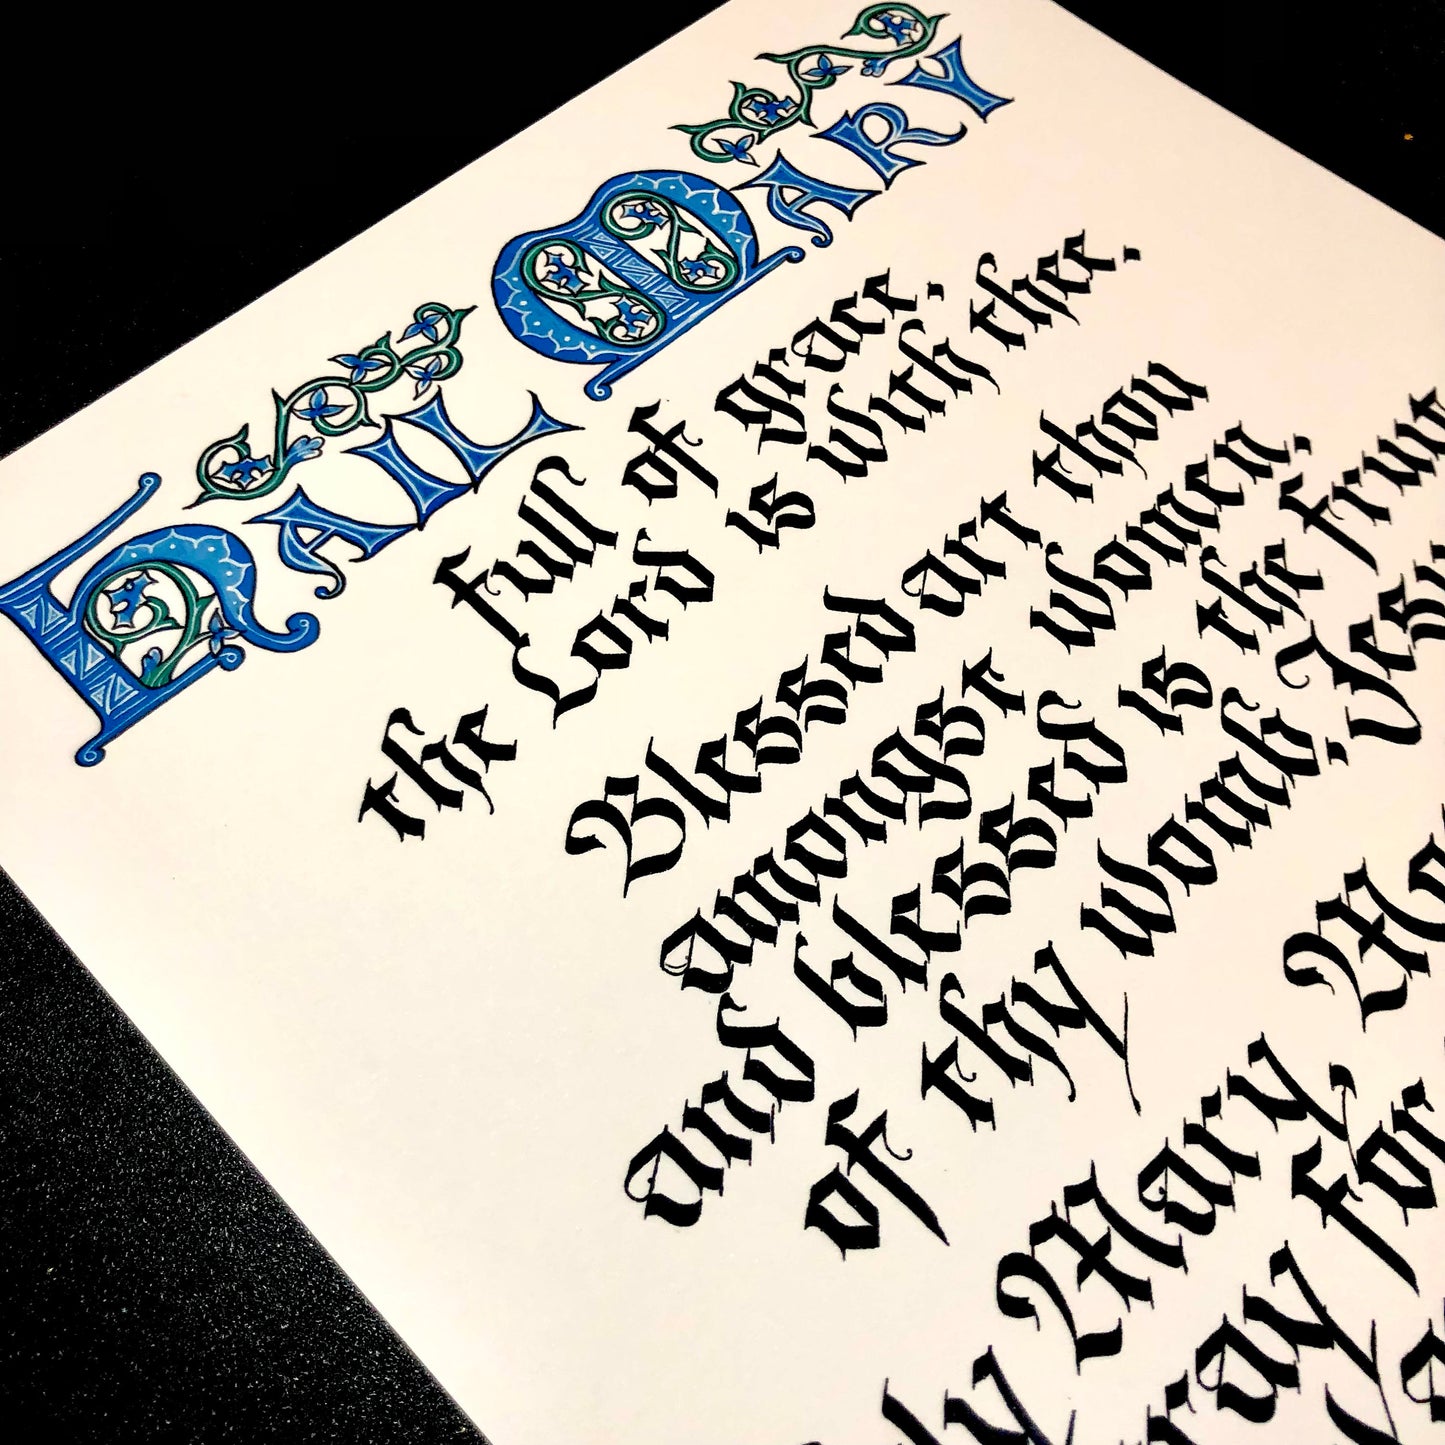 HAIL MARY
full of grace.
the Lord is with thee.
Blessed art thou
amongst women.
and blessed is the fruit
of thy womb, Jesu
Mary, Mo
ray for